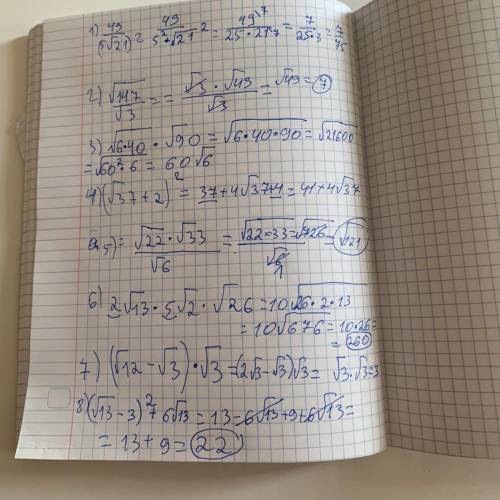 1) 49/(5√21)² = 49/(5²·√21²) = 49/(25·21) = 7/(25·3) = 7/75
2) √147/√3 = = (√3·√49)/√3 = √49 = 7
3) √6·40 · √90 = √6·40·90 = √21600
= √60²·6 = 60√6
4) (√37+2)² = 37+4√37+4 = 41+4√37
5) = (√22·√33)/√6 = (√22×33 = √726)/√6 = √121
6) 2√13·5√2·√26 = 10√26·2·13
= 10√676 = 10·26 =
= 260
7) (√12-√3)·√3 = (2√3-√3)√3 = √3·√3 = 3
8) (√13-3)²+6√13 = 13 = 6√13+9+6√13 =
= 13+9 = 22